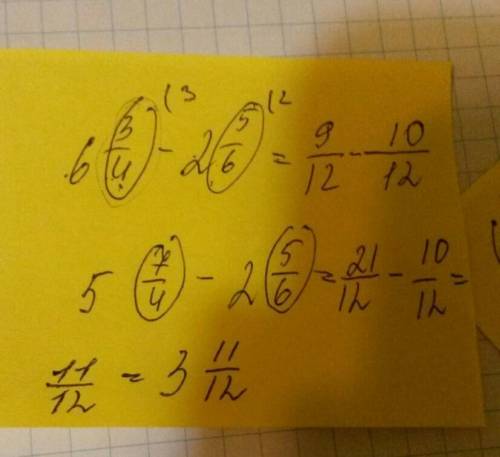 6 3/4 (3 - 2 5/6 (2 = 9/12 - 10/12
5 7/4 - 2 5/6 = 21/12 - 10/12 =
11/12 = 3 11/12